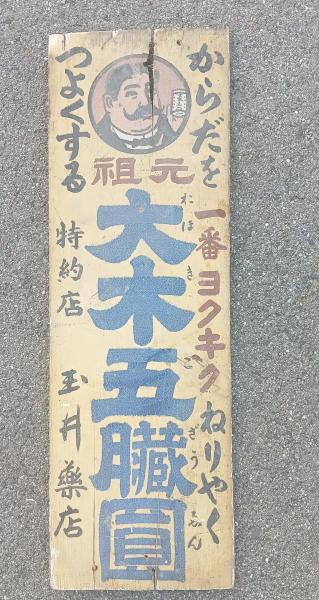 からだを
つよくする
元祖
一番ヨクキクねりやく
大木五臓圓
おほきござうゑん
特約店 玉井藥店